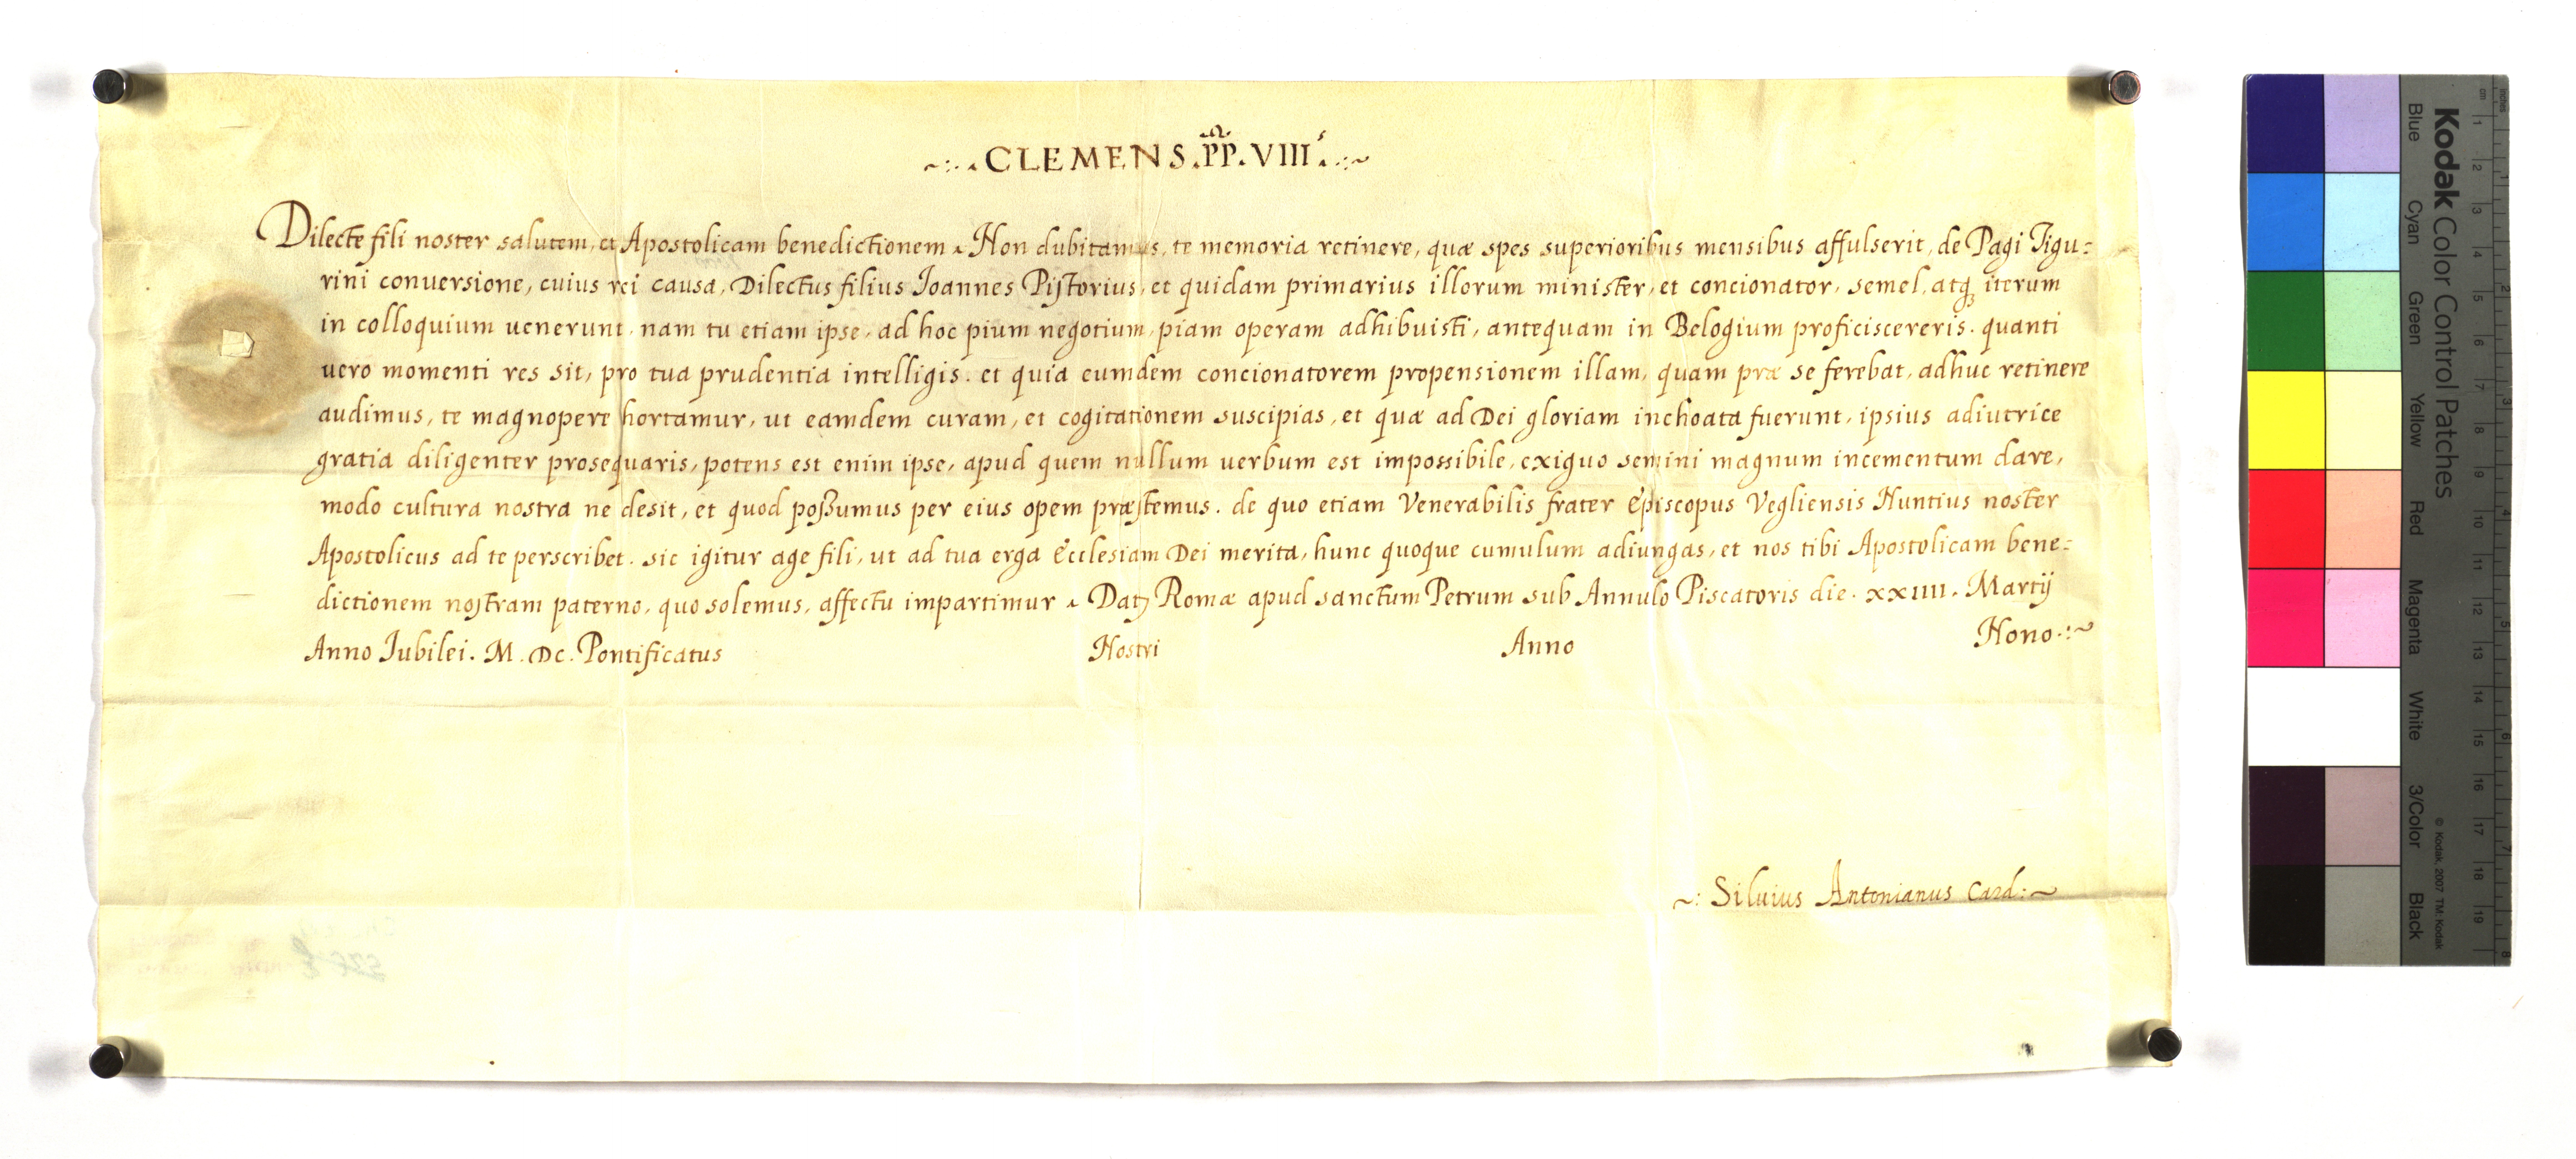 ~:. CLEMENS. PP. VIII.s .:~
Dilecte fili noster salutem, et Apostolicam benedictionem. Non dubitamus, te memoria retinere, quæ spes superioribus mensibus affulserit, de Pagi Tigu=
rini conversione, cuius rei causa, Dilectus filius Joannes Pistorius, et quidam primarius illorum minister, et concionator, semel, atq; iterum
in colloquium uenerunt. nam tu etiam ipse, ad hoc pium negotium, piam operam adhibuisti, antequam in Belogium proficiscereris. quanti
uero momenti res sit, pro tua prudentia intelligis. et quia eumdem concionatorem propensionem illam, quam præ se ferebat, adhuc retinere
audimus, te magnopere hortamur, ut eamdem curam, et cogitationem suscipias, et quæ ad Dei gloriam inchoata fuerunt, ipsius adiutrice
gratia diligenter prosequaris, potens est enim ipse, apud quem nullum uerbum est impossibile, exiguo semini magnum incementum dare,
modo cultura nostra ne desit, et quod poßumus per eius opem præstemus. de quo etiam Venerabilis frater Episcopus Vegliensis Nuntius noster
Apostolicus ad te perscribet. sic igitur age fili, ut ad tua erga Ecclesiam Dei merita, hunc quoque cumulum adiungas, et nos tibi Apostolicam bene=
dictionem nostram paterno, quo solemus, affectu impartimur. Datȝ Romæ apud sanctum Petrum sub Annulo Piscatoris die. xxiiii. Martij
Anno Jubilei. M. DC. Pontificatus Nostri Anno Nono.:~
~: Siluius Antonianus Card:~
Kodak Color Control Patches
Blue Cyan Green Yellow Red Magenta White 3/Color Black
© Kodak, 2007 TM: Kodak
cm 1 2 3 4 5 6 7 8 9 10 11 12 13 14 15 16 17 18 19
inches 1 2 3 4 5 6 7 8